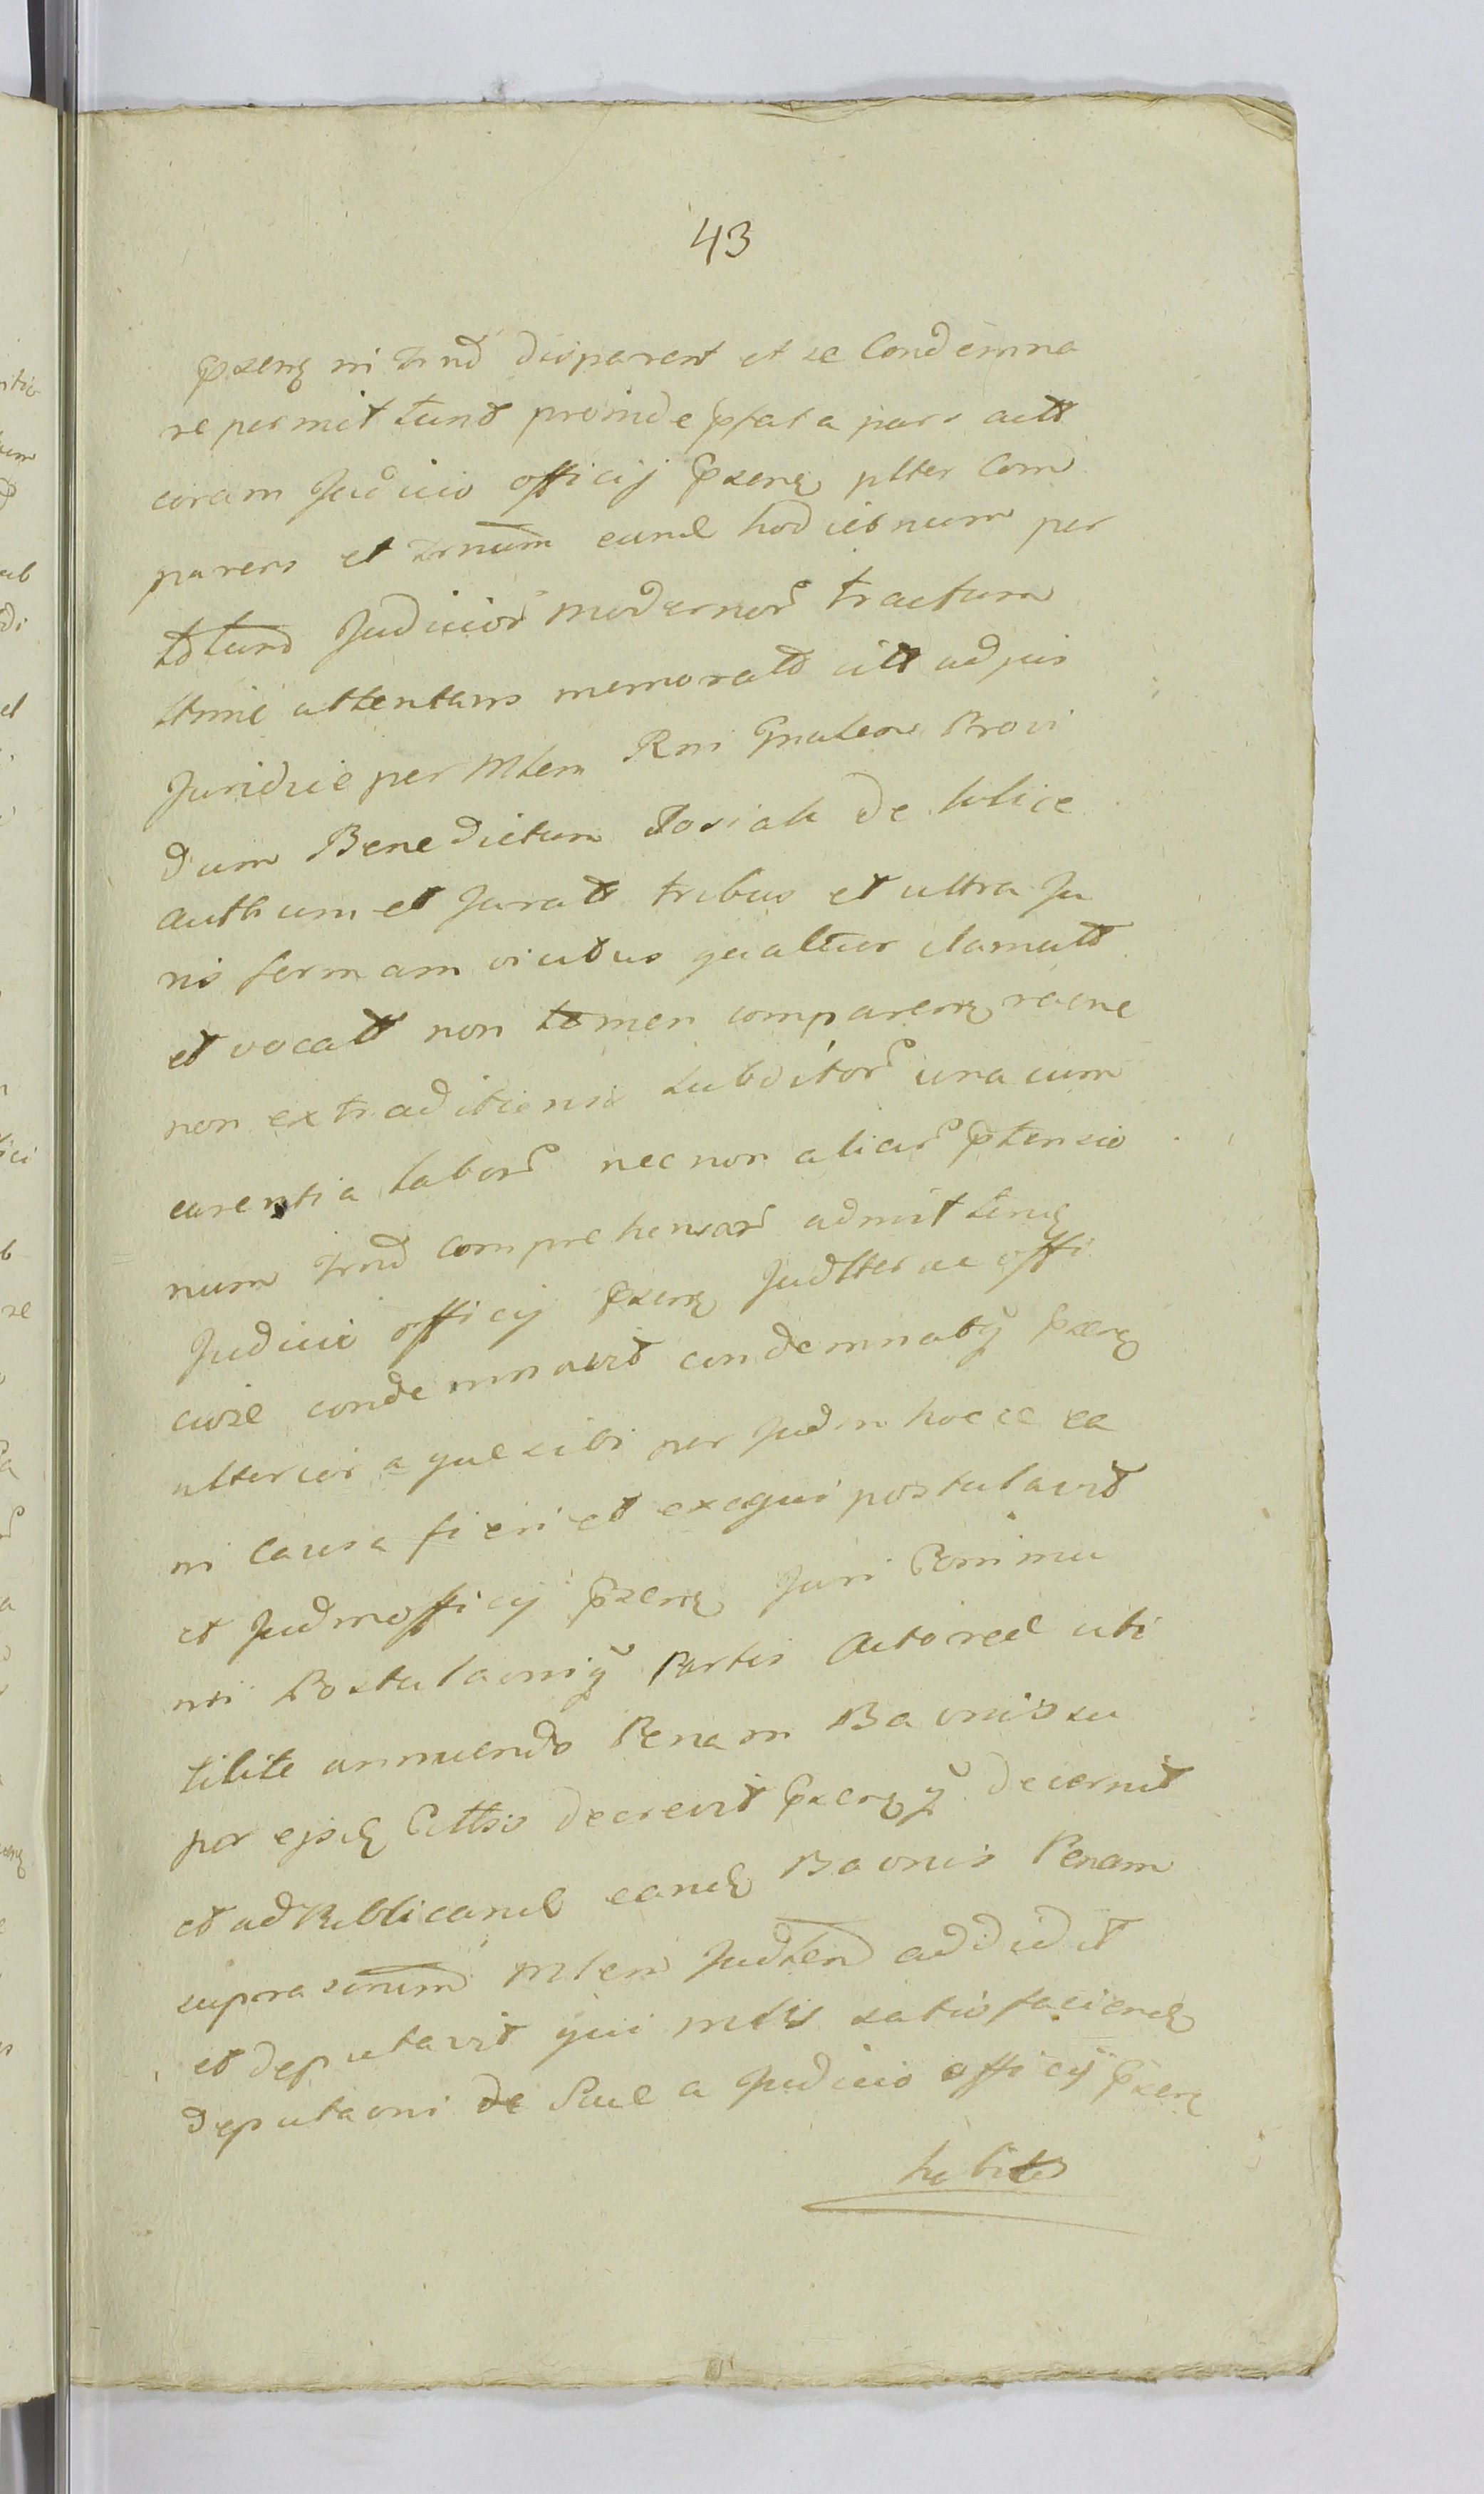 43
pñseng in trnd disparent et se Condemna
re permittunt proinde pfata pars actt
coram Judicio officij pñseng plter Com
parens et trnum eund hodiernum per
totum Judicior modernor tractum
ltime attentans memoratt citt ad jus
Juridice per Mtem Rni Gnalem Provi
dum Benedictum Josiak de
authum et Juratt tribus et ultra Ju
ris formam vicibus quatuor clamatt
et vocatt non tamen compareng racne
non extraditionis subditor una cum
carentia labor nec non aliar ptensio
num trnd comprehensar admitteng
Judicio officij pñseng Judlter ac offi
ciose condemnavit condemnatq pñseng
ulteriora que sibi per Judm hocce ea
in Causa fieri et exequi postulavit
et Judm officij pñseng Juri Comimu
ni Postulaoniq Partis Actoree uti
tilite annuendo Penam Baonis su
per ejsd Cittis decrevit pñsengq decernit
et ad Publicand eand Baonis Penam
suprascrium Mtem Judlem addidit
et deputavit qui Mtr satisfaciendo
deputaoni de Sue a Judicio officij pñseng
habite